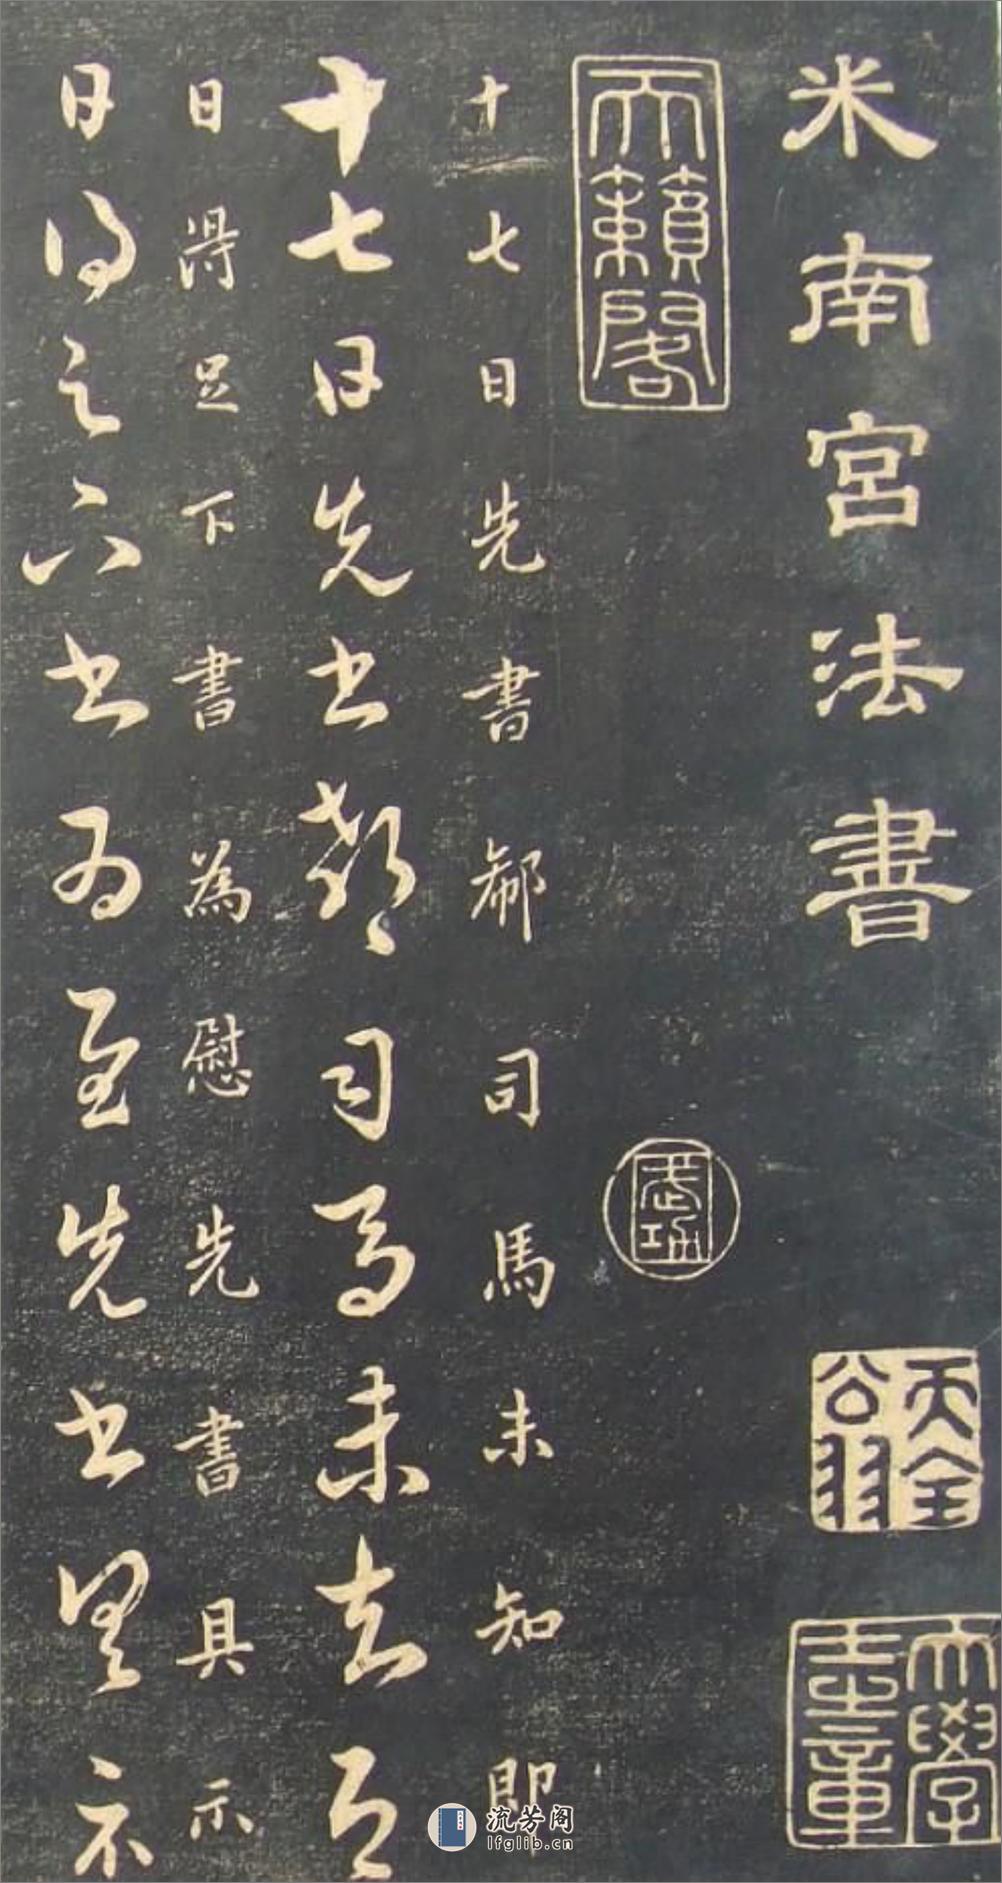 米南宮法書
天全翁
大學士章
天籟閣
武功
十七日先書郗司馬未知即
十七日先書郗司馬未去即
日得足下書為慰先書具示
日得足下書為慰先書具示
流芳阁
lfglib.cn